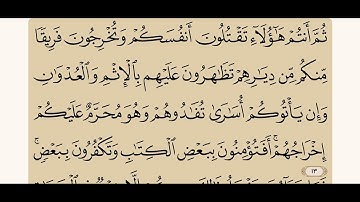 ثُمَّ أَنتُمْ هَٰٓؤُلَآءِ تَقْتُلُونَ أَنفُسَكُمْ وَتُخْرِجُونَ فَرِيقًا
مِّنكُم مِّن دِيَٰرِهِمْ تَظَٰهَرُونَ عَلَيْهِم بِٱلْإِثْمِ وَٱلْعُدْوَٰنِ
وَإِن يَأْتُوكُمْ أُسَٰرَىٰ تُفَٰدُوهُمْ وَهُوَ مُحَرَّمٌ عَلَيْكُمْ
إِخْرَاجُهُمْ ۚ أَفَتُؤْمِنُونَ بِبَعْضِ ٱلْكِتَٰبِ وَتَكْفُرُونَ بِبَعْضٍ ۚ
١٣